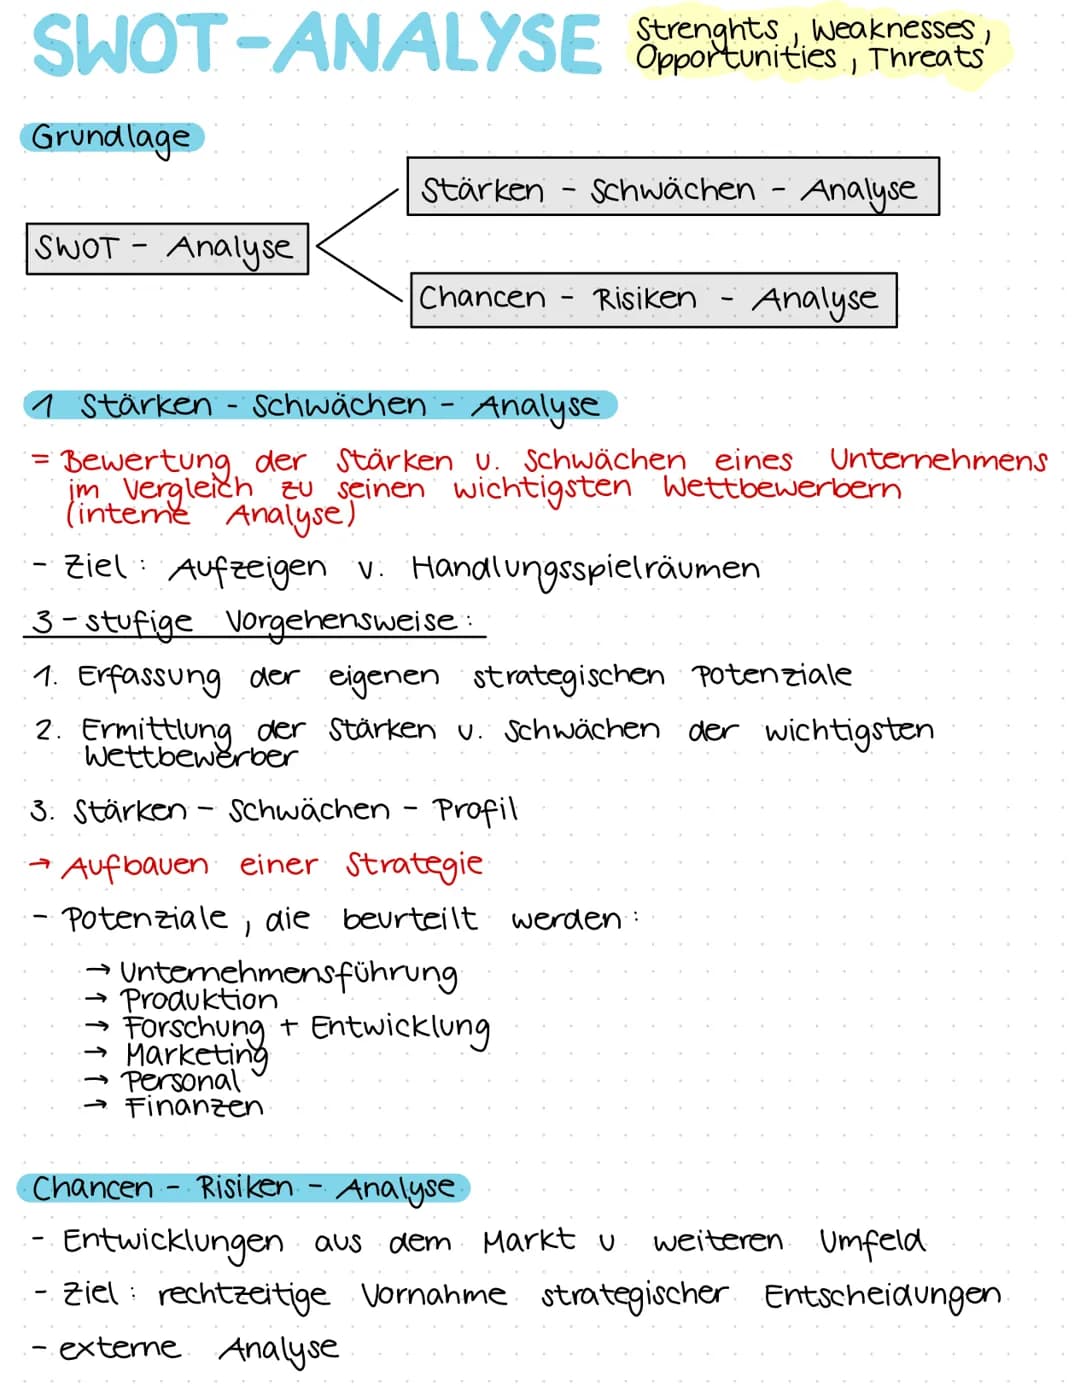 SWOT-ANALYSE
Strenghts, Weaknesses,
Opportunities, Threats
Grundlage
Stärken - Schwächen - Analyse
SWOT - Analyse
Chancen - Risiken - Analyse
1 Stärken - Schwächen - Analyse
= Bewertung der Stärken u. Schwächen eines Unternehmens
im Vergleich zu seinen wichtigsten Wettbewerbern
(interne Analyse)
- Ziel: Aufzeigen v. Handlungsspielräumen
3-stufige Vorgehensweise:
1. Erfassung der eigenen strategischen Potenziale
2. Ermittlung der Stärken u. Schwächen der wichtigsten
Wettbewerber
3. Stärken - Schwächen - Profil
→ Aufbauen einer Strategie
- Potenziale, die beurteilt werden:
→ Unternehmensführung
→ Produktion
→ Forschung + Entwicklung
→ Marketing
→ Personal
→ Finanzen
Chancen - Risiken - Analyse
- Entwicklungen aus dem Markt u weiteren Umfeld
- Ziel: rechtzeitige Vornahme strategischer Entscheidungen
- externe Analyse